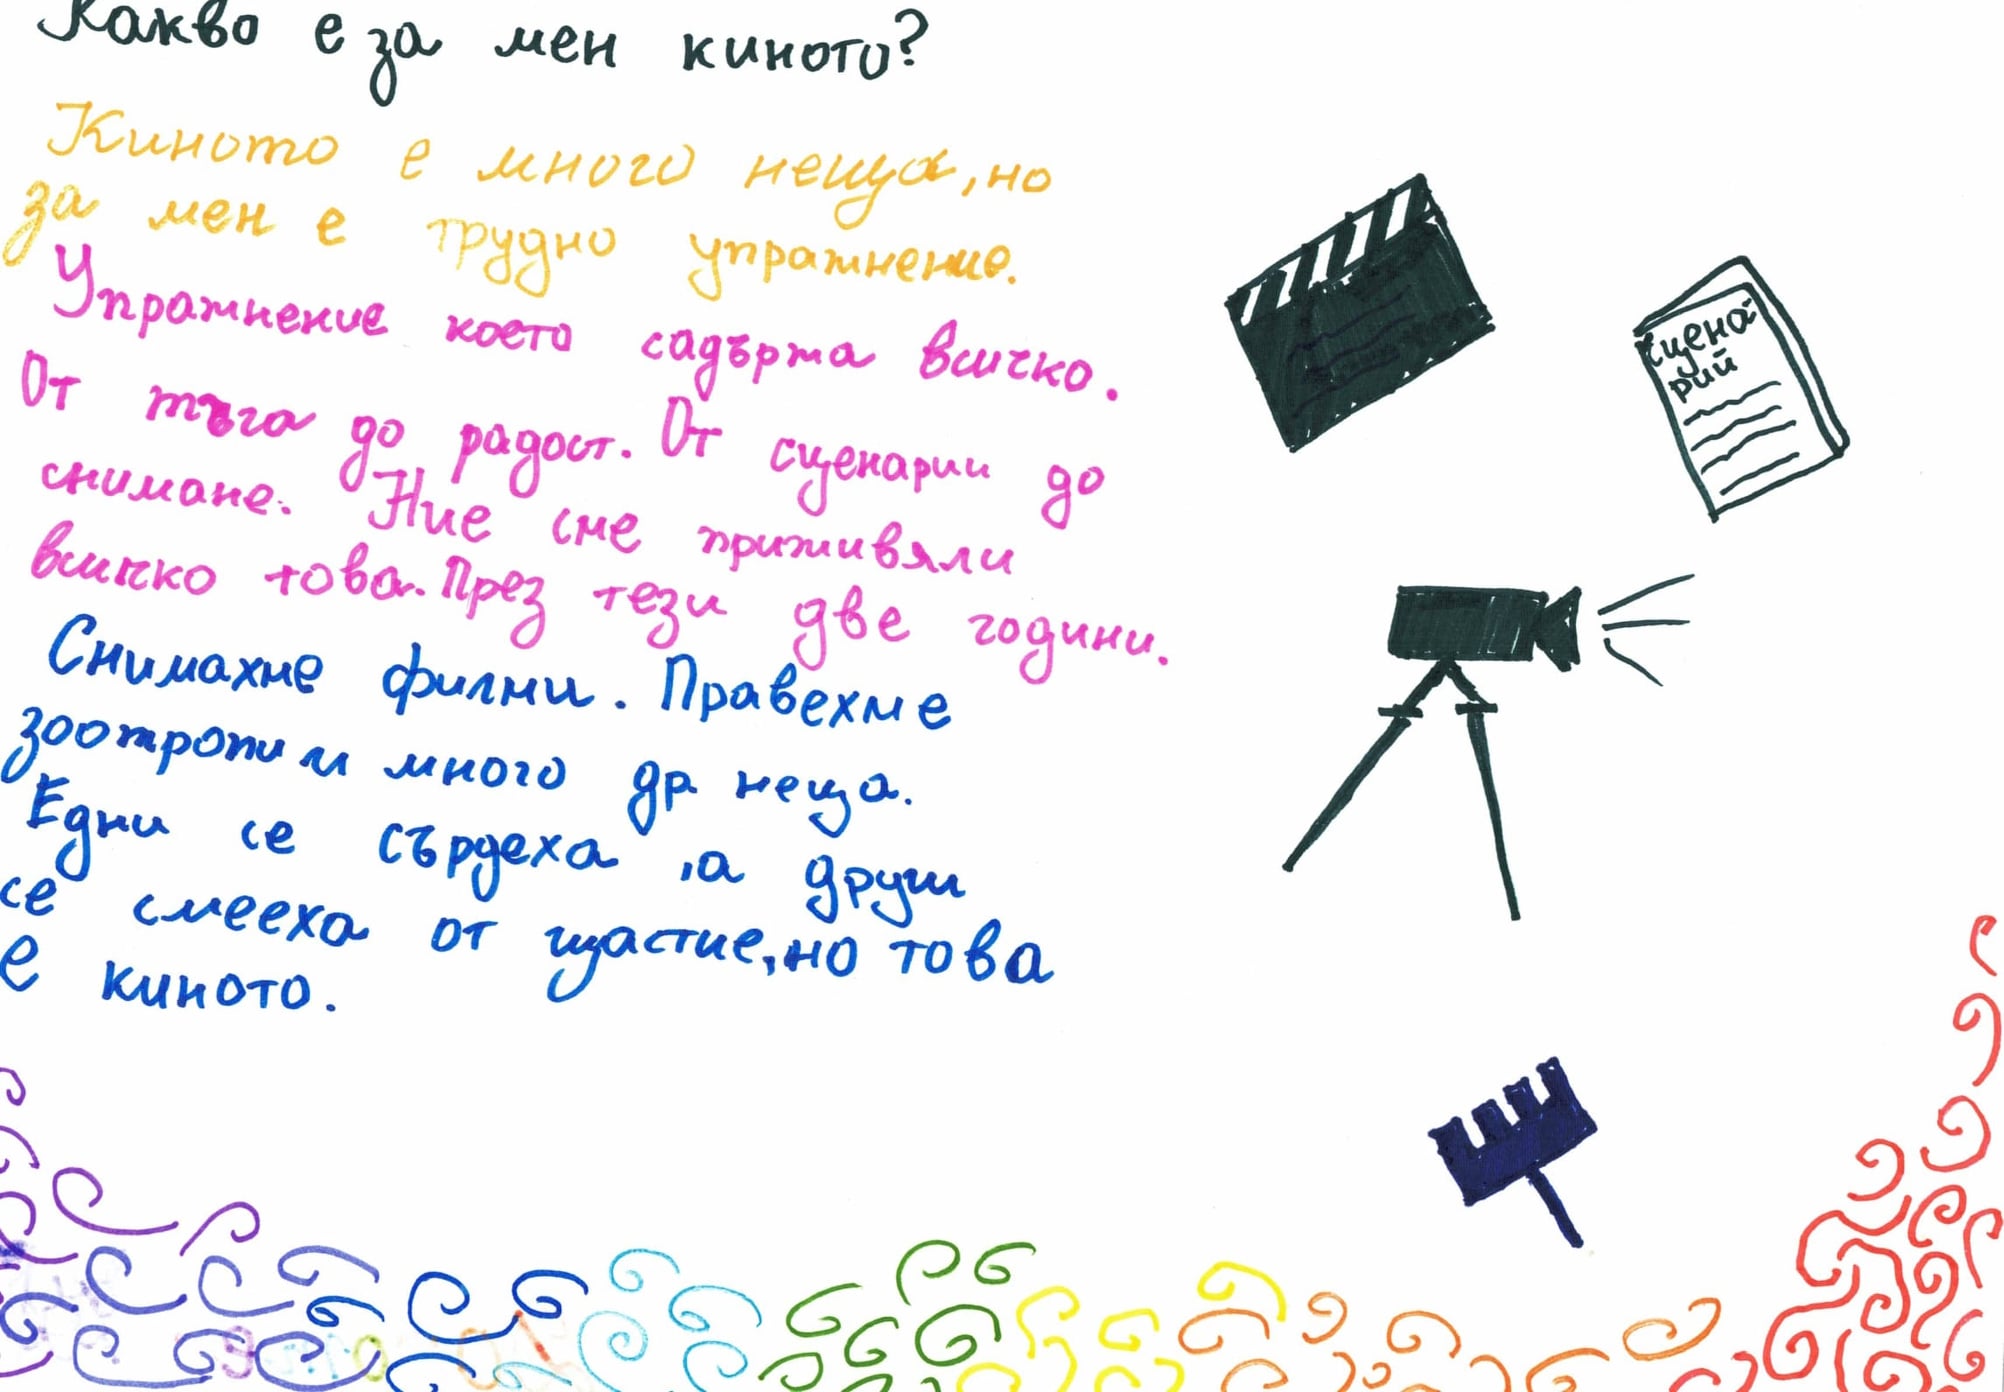 Какво е за мен киното?
Киното е много неща, но
за мен е трудно упражнение.
Упражнение което садържа всичко.
От тъга до радост. От сценарии до
снимане. Ние сме приживяли
всичко това. През тези две години.
Снимахме филми. Правехме
зоотропи и много др неща.
Едни се сърдеха, а други
се смееха от щастие, но това
е киното.
сцена
рий